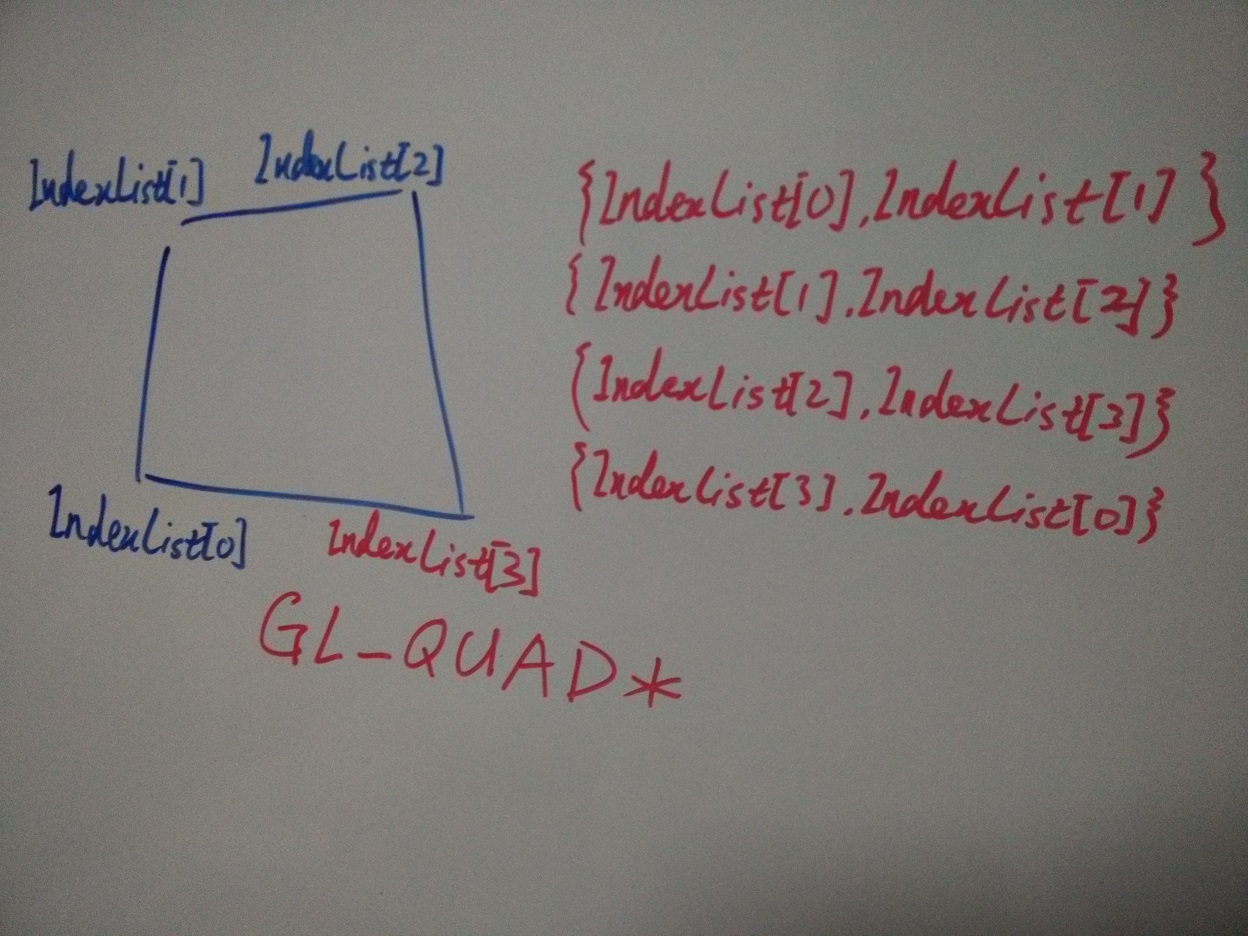 IndexList[1]
IndexList[2]
IndexList[0]
IndexList[3]
{IndexList[0],IndexList[1]}
{IndexList[1],IndexList[2]}
{IndexList[2],IndexList[3]}
{IndexList[3],IndexList[0]}
GL_QUAD*